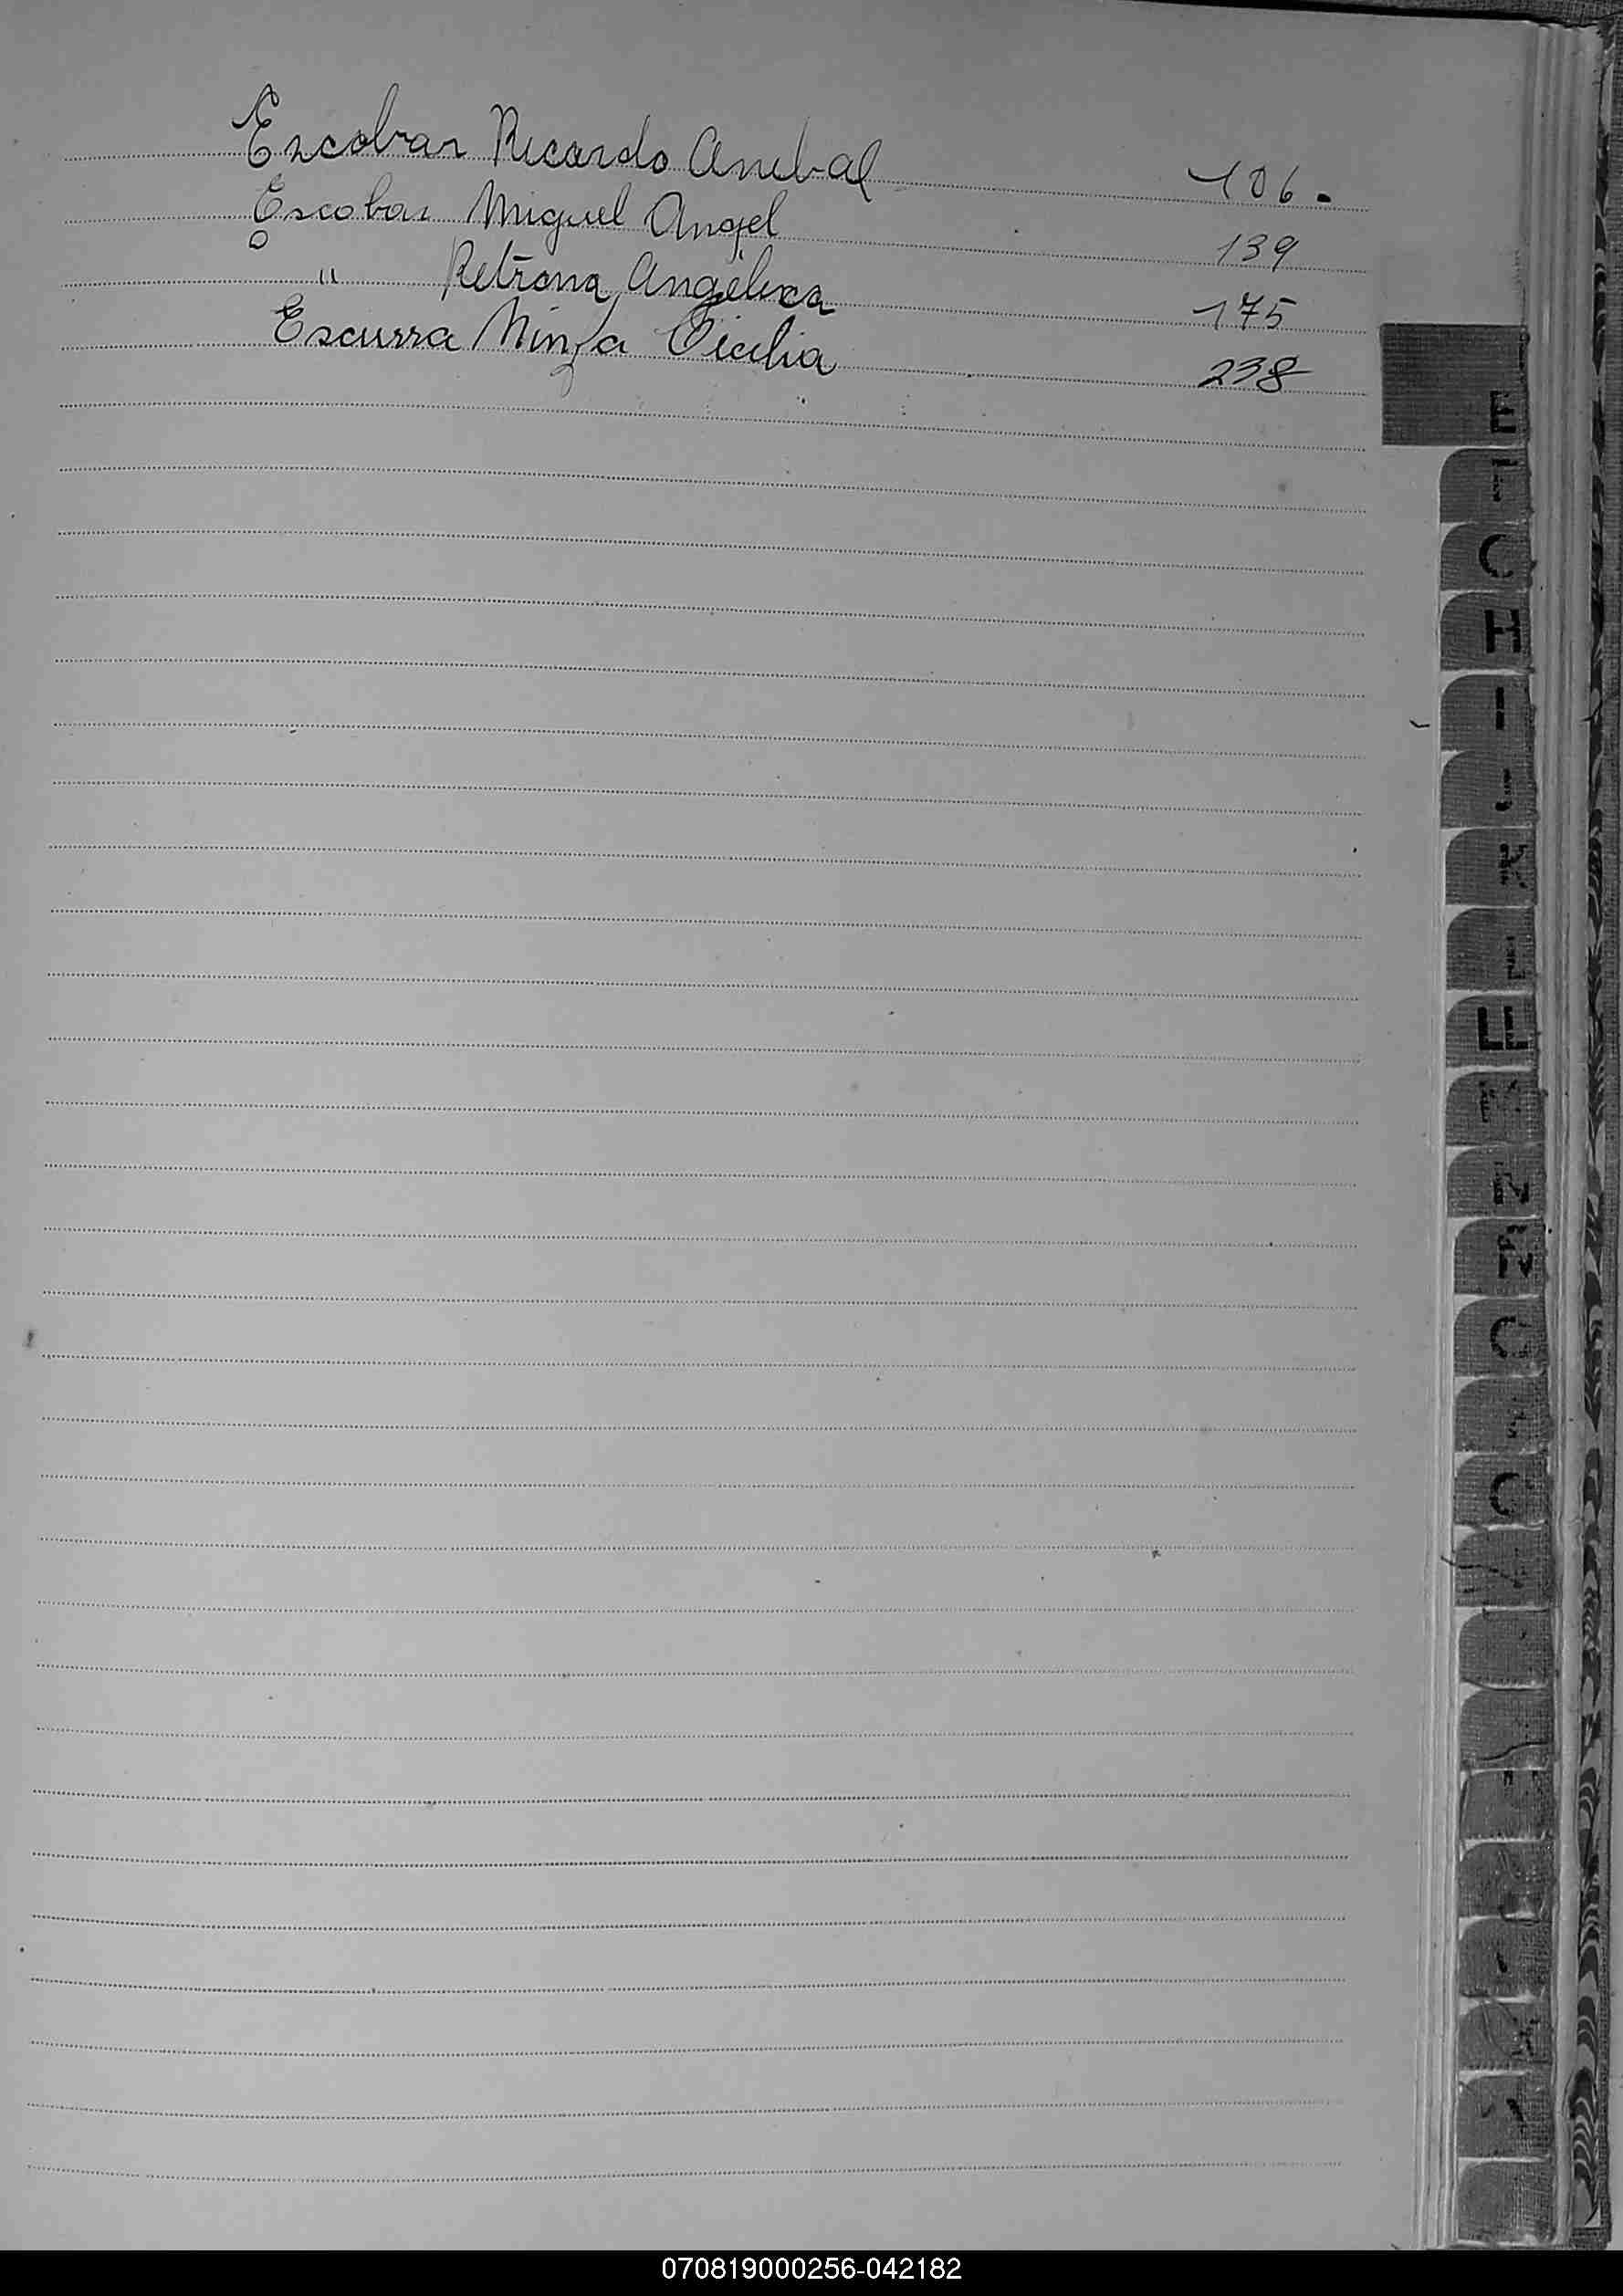 Escobar Ricardo Anibal 106.
Escobar Miguel Angel 139
" Petrona Angelica 175
Escurra Ninfa Cicilia 238
E
C
H
I
L
LL
O
070819000256-042182